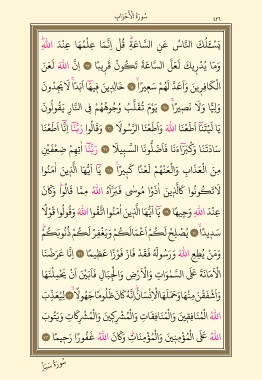 سُورَةُ الْأَحْزَابِ
٤٢٦
يَسْـَٔلُكَ النَّاسُ عَنِ السَّاعَةِۜ قُلْ اِنَّمَا عِلْمُهَا عِنْدَ اللّٰهِۜ
وَمَا يُدْرٖيكَ لَعَلَّ السَّاعَةَ تَكُونُ قَرٖيبًا ﴿٦٣﴾ اِنَّ اللّٰهَ لَعَنَ
الْكَافِرٖينَ وَاَعَدَّ لَهُمْ سَعٖيرًاۙ ﴿٦٤﴾ خَالِدٖينَ فٖيهَٓا اَبَدًاۚ لَا يَجِدُونَ
وَلِيًّا وَلَا نَصٖيرًاۚ ﴿٦٥﴾ يَوْمَ تُقَلَّبُ وُجُوهُهُمْ فِي النَّارِ يَقُولُونَ
يَا لَيْتَنَٓا اَطَعْنَا اللّٰهَ وَاَطَعْنَا الرَّسُولَا ﴿٦٦﴾ وَقَالُوا رَبَّنَٓا اِنَّٓا اَطَعْنَا
سَادَتَنَا وَكُبَرَٓاءَنَا فَاَضَلُّونَا السَّبٖيلَا ﴿٦٧﴾ رَبَّنَٓا اٰتِهِمْ ضِعْفَيْنِ
مِنَ الْعَذَابِ وَالْعَنْهُمْ لَعْنًا كَبٖيرًا۟ ﴿٦٨﴾ يَٓا اَيُّهَا الَّذٖينَ اٰمَنُوا
لَا تَكُونُوا كَالَّذٖينَ اٰذَوْا مُوسٰى فَبَرَّاَهُ اللّٰهُ مِمَّا قَالُواۜ وَكَانَ
عِنْدَ اللّٰهِ وَجٖيهًاۜ ﴿٦٩﴾ يَٓا اَيُّهَا الَّذٖينَ اٰمَنُوا اتَّقُوا اللّٰهَ وَقُولُوا قَوْلًا
سَدٖيدًاۙ ﴿٧٠﴾ يُصْلِحْ لَكُمْ اَعْمَالَكُمْ وَيَغْفِرْ لَكُمْ ذُنُوبَكُمْۜ
وَمَنْ يُطِعِ اللّٰهَ وَرَسُولَهُ فَقَدْ فَازَ فَوْزًا عَظٖيمًا ﴿٧١﴾ اِنَّا عَرَضْنَا
الْاَمَانَةَ عَلَى السَّمٰوَاتِ وَالْاَرْضِ وَالْجِبَالِ فَاَبَيْنَ اَنْ يَحْمِلْنَهَا
وَاَشْفَقْنَ مِنْهَا وَحَمَلَهَا الْاِنْسَانُۜ اِنَّهُ كَانَ ظَلُومًا جَهُولًاۙ ﴿٧٢﴾ لِيُعَذِّبَ
اللّٰهُ الْمُنَافِقٖينَ وَالْمُنَافِقَاتِ وَالْمُشْرِكٖينَ وَالْمُشْرِكَاتِ وَيَتُوبَ
اللّٰهُ عَلَى الْمُؤْمِنٖينَ وَالْمُؤْمِنَاتِۜ وَكَانَ اللّٰهُ غَفُورًا رَحٖيمًا ﴿٧٣﴾
سُورَةُ سَبَأٍ